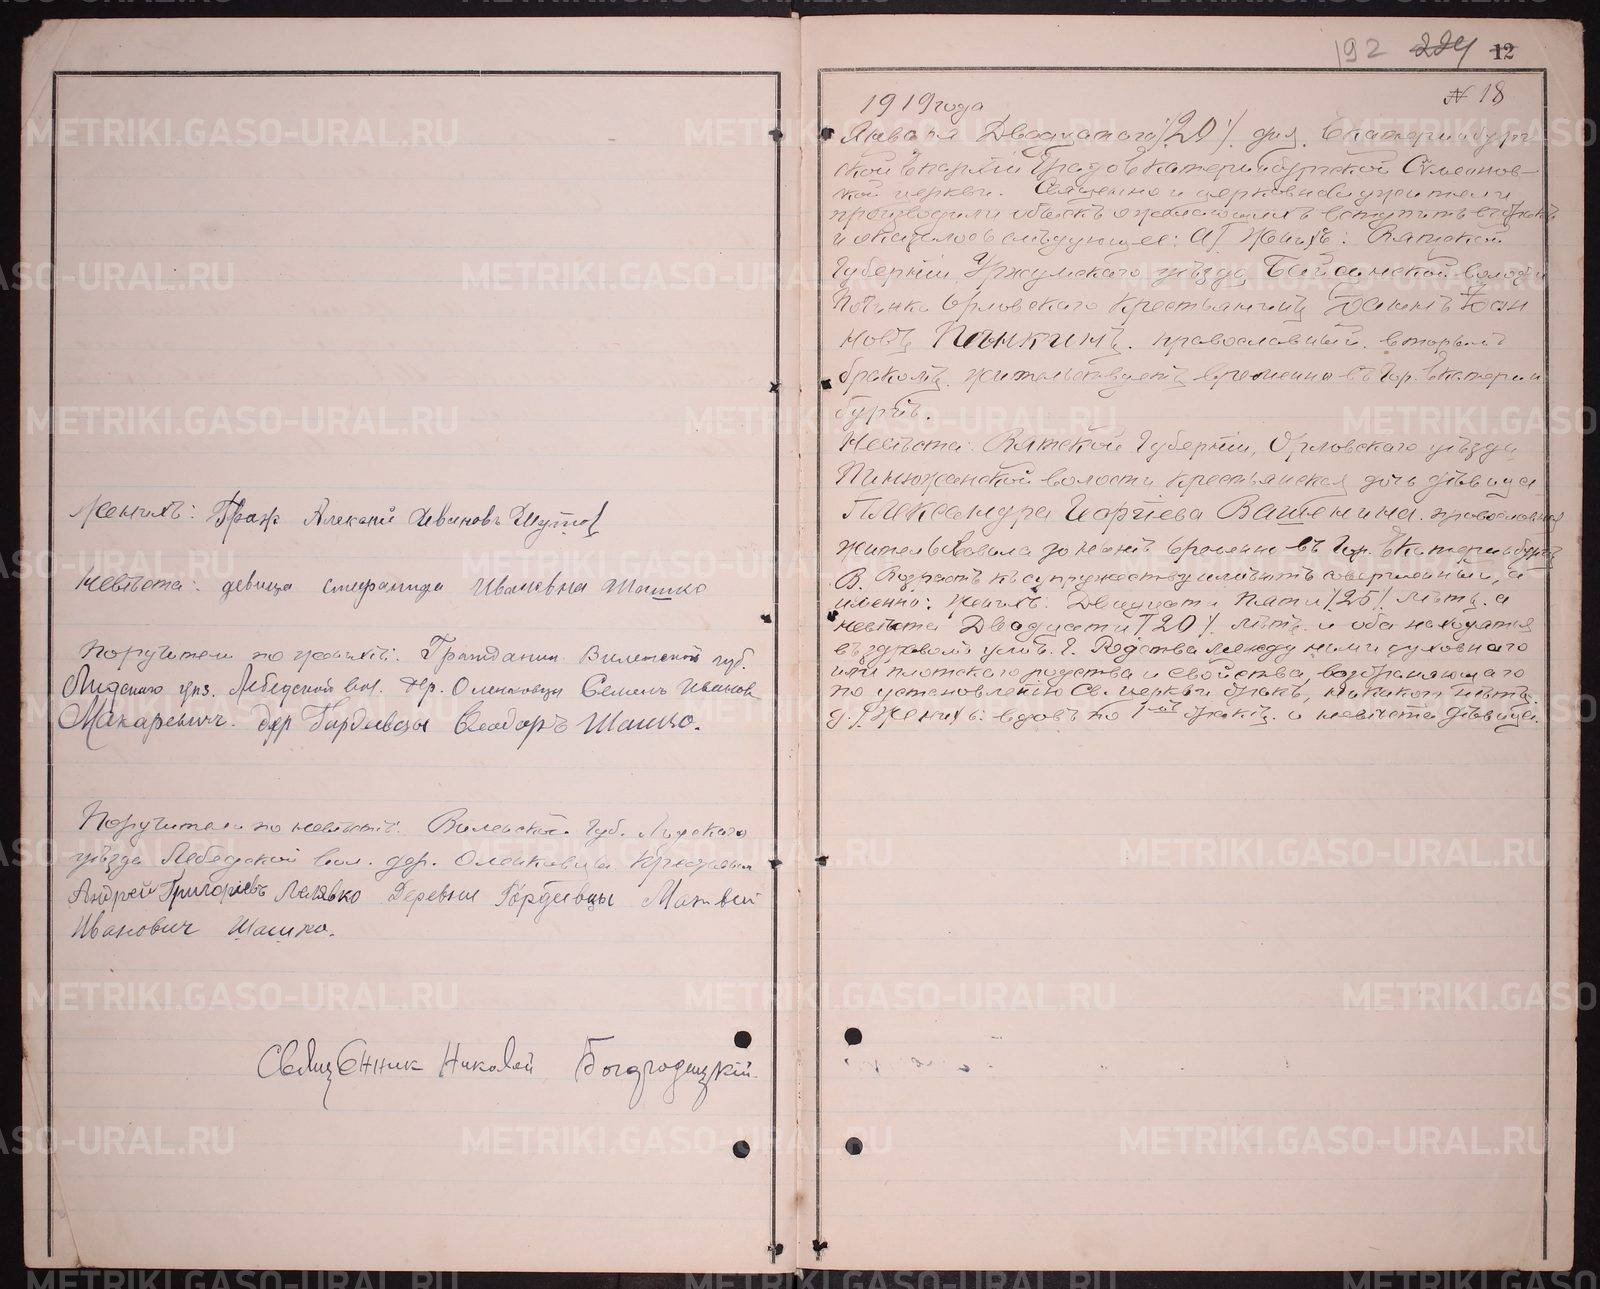 Женихъ: Граж Алексей Ивановъ Шутов
Невѣста: девица Стефанида Ивановна Шашко
Поручители по женихѣ: Гражданин Виленской губ.
Лидскаго уѣз. Лебедской вол. дер. Оленковцы Семенъ Иванов
Макаревич. дер Гордевцы Ѳеодоръ Шашко.
Поручители по невѣстѣ: Виленской Губ. Лидскаго
уѣзда Лебедской вол. дер. Оленковцы
Андрей Григорьевъ Деревни Гордевцы Матвей
Иванович Шашко.
Священник Николай Богородицкій
192 224 12
№ 18
1919 года
Января Двадцатаго /20/ дня. Екатеринбург
ской Епархіи Градо Екатеринбургской Симеонов-
кой церкви. Священно и церковнослужители
производили обыскъ о желающихъ вступить въ бракъ
и оказалось слѣдующее: А/ Женихъ: Вятской
Губерніи Уржумскаго уѣзда, Байсинской волости
Починка Орловскаго крестьянинъ Іоаннъ Іоан
новъ Пѣнкинъ. православный. вторымъ
бракомъ. жительствуетъ временно въ Гор. Екатерин
бургѣ.
Невѣста: Вятской Губерніи, Орловскаго уѣзда
Пинюжанской волости крестьянская дочь дѣвица
Александра Георгіева Ватенина. православная
жительствовала до нынѣ временно въ Гор. Екатеринбургѣ
В. Возрастъ къ супружеству имѣютъ совершенный, а
именно: женихъ: Двадцати Пяти /25/ лѣтъ. а
невѣста Двадцати /20/ лѣтъ. и оба находятся
въ здравомъ умѣ. Г. Родства между ними духовнаго
или плотскаго родства и свойства, возбраняющаго
по установленію Св. церкви бракъ, никакого нѣтъ
Д./ Женихъ: вдовъ по 1-мъ бракѣ. и невѣста дѣвица.
METRIKI.GASO-URAL.RU